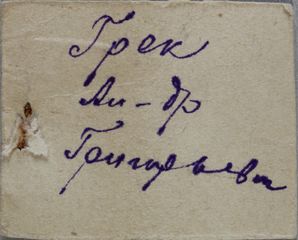 Грек
Ан-др
Григорьевич